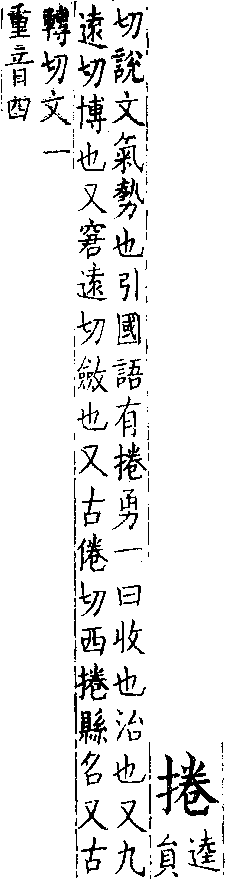 捲
逵
員
切說文氣勢也引國語有捲勇一曰收也治也又九
遠切博也又窘遠切斂也又古倦切西捲縣名又古
轉切文一
重音四